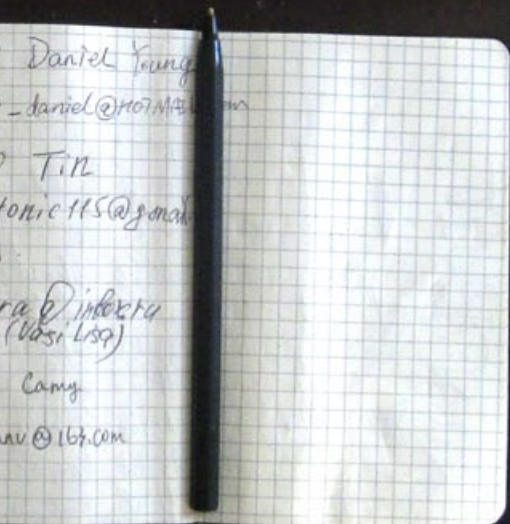 Daniel Young
_daniel@HOTMAIL
Tin
tonic115@gmail
ra@inbox.ru
(Vasilisa)
Camy
@163.com